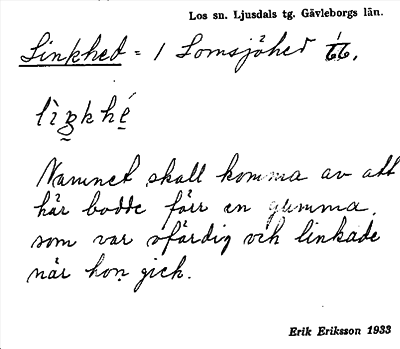 Los sn. Ljusdals tg. Gävleborgs län.
Linkhed = 1 Lomsjöhed 1/66.
Namnet skall komma av att
här bodde förr en gumma,
som var ofärdig och linkade
när hon gick.
Erik Eriksson 1933